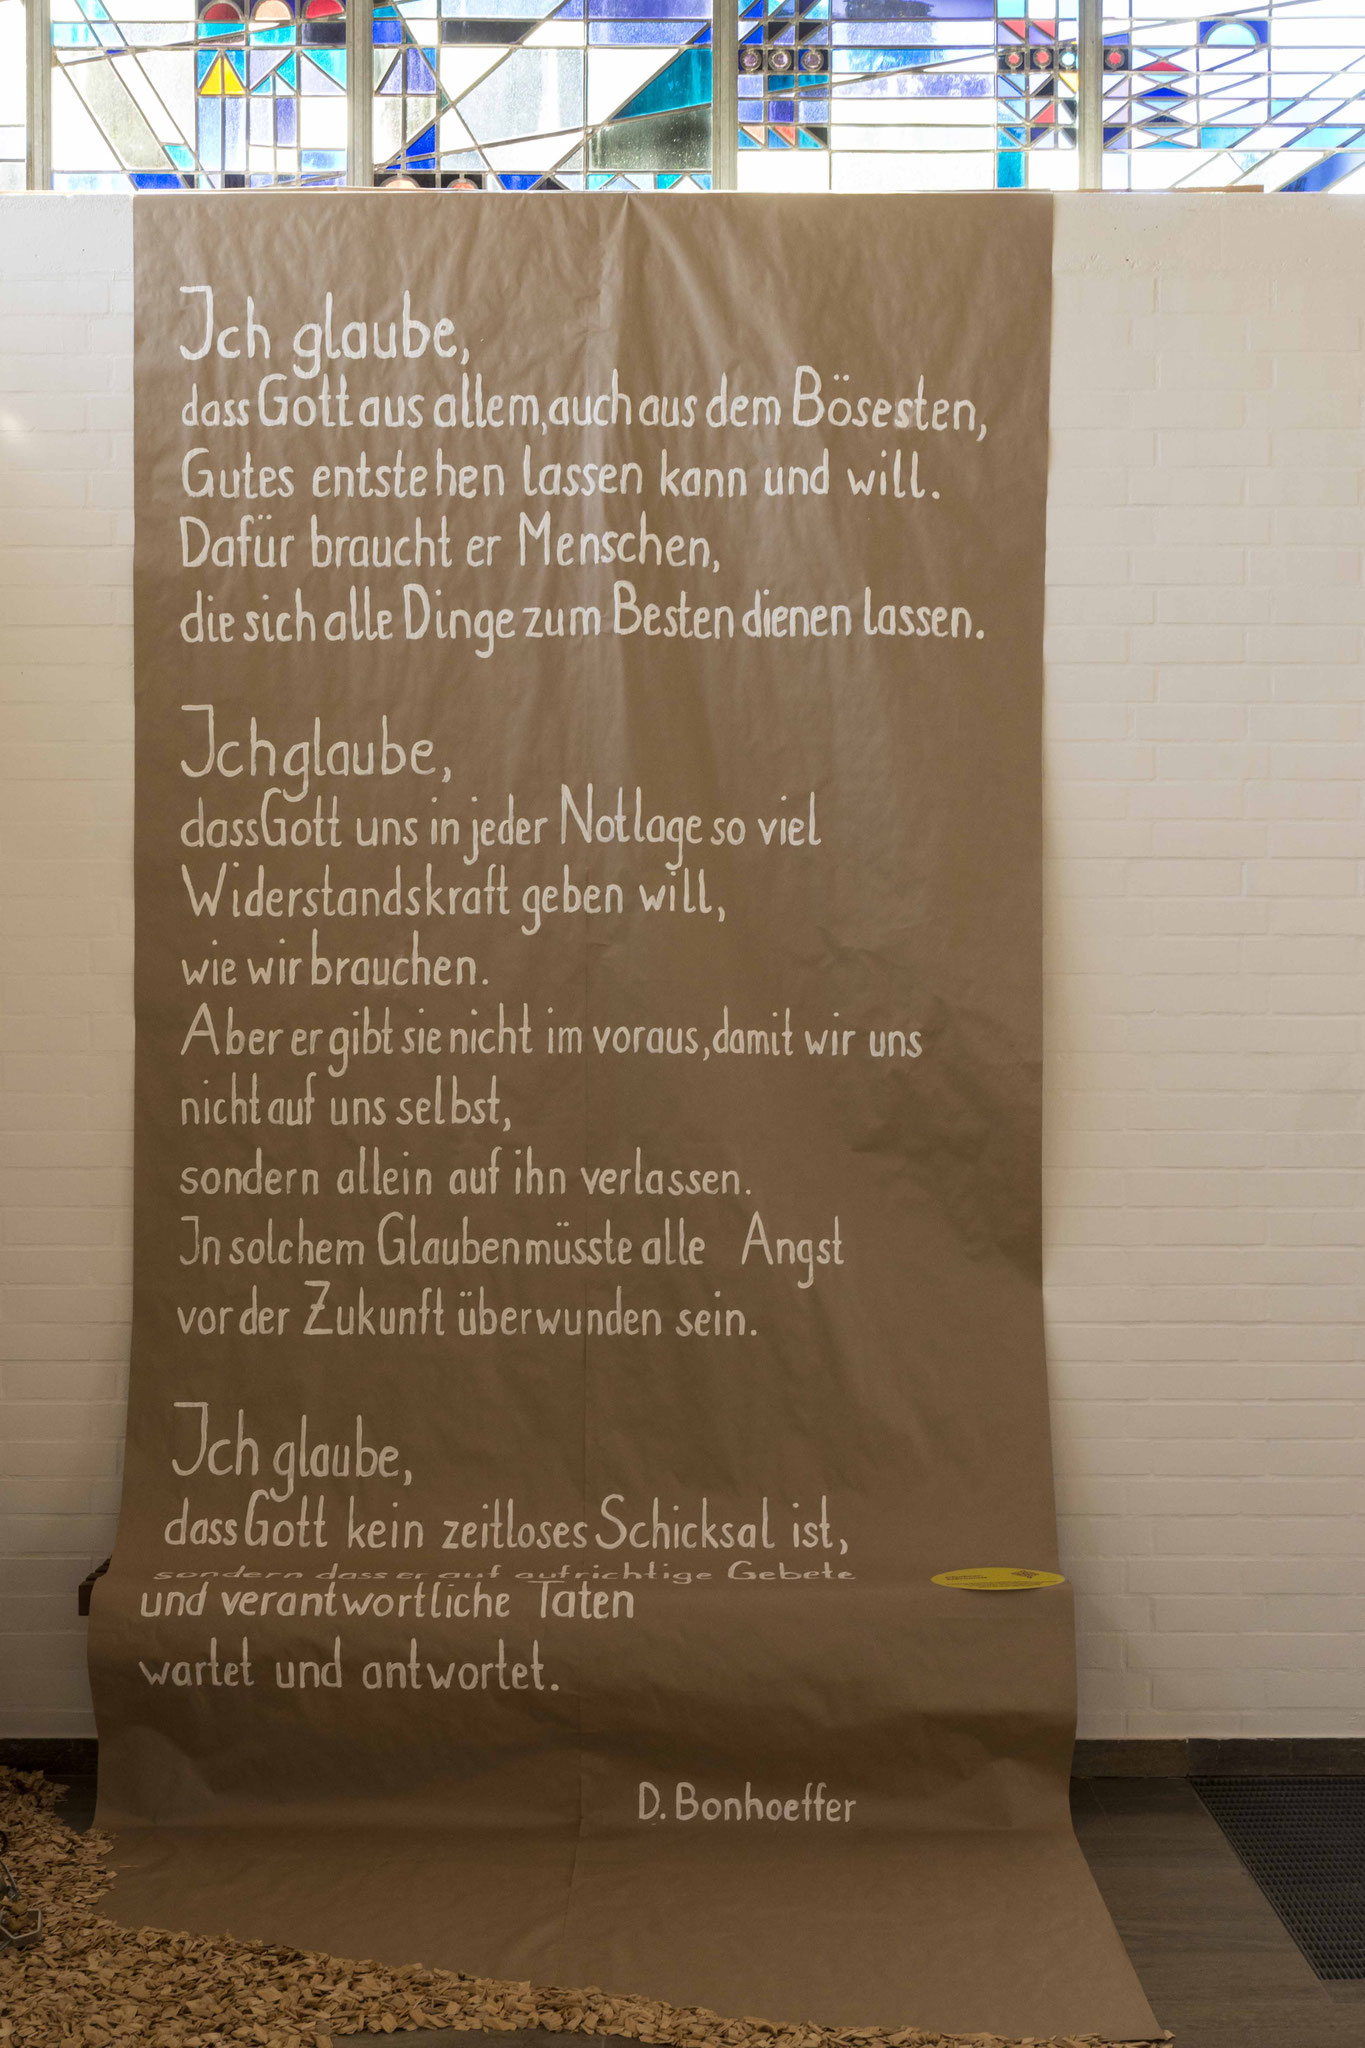 Ich glaube,
dass Gott aus allem, auch aus dem Bösesten,
Gutes entstehen lassen kann und will.
Dafür braucht er Menschen,
die sich alle Dinge zum Besten dienen lassen.
Ich glaube,
dass Gott uns in jeder Notlage so viel
Widerstandskraft geben will,
wie wir brauchen.
Aber er gibt sie nicht im voraus, damit wir uns
nicht auf uns selbst,
sondern allein auf ihn verlassen.
In solchem Glauben müsste alle Angst
vor der Zukunft überwunden sein.
Ich glaube,
dass Gott kein zeitloses Schicksal ist,
sondern dass er auf aufrichtige Gebete
und verantwortliche Taten
wartet und antwortet.
D. Bonhoeffer